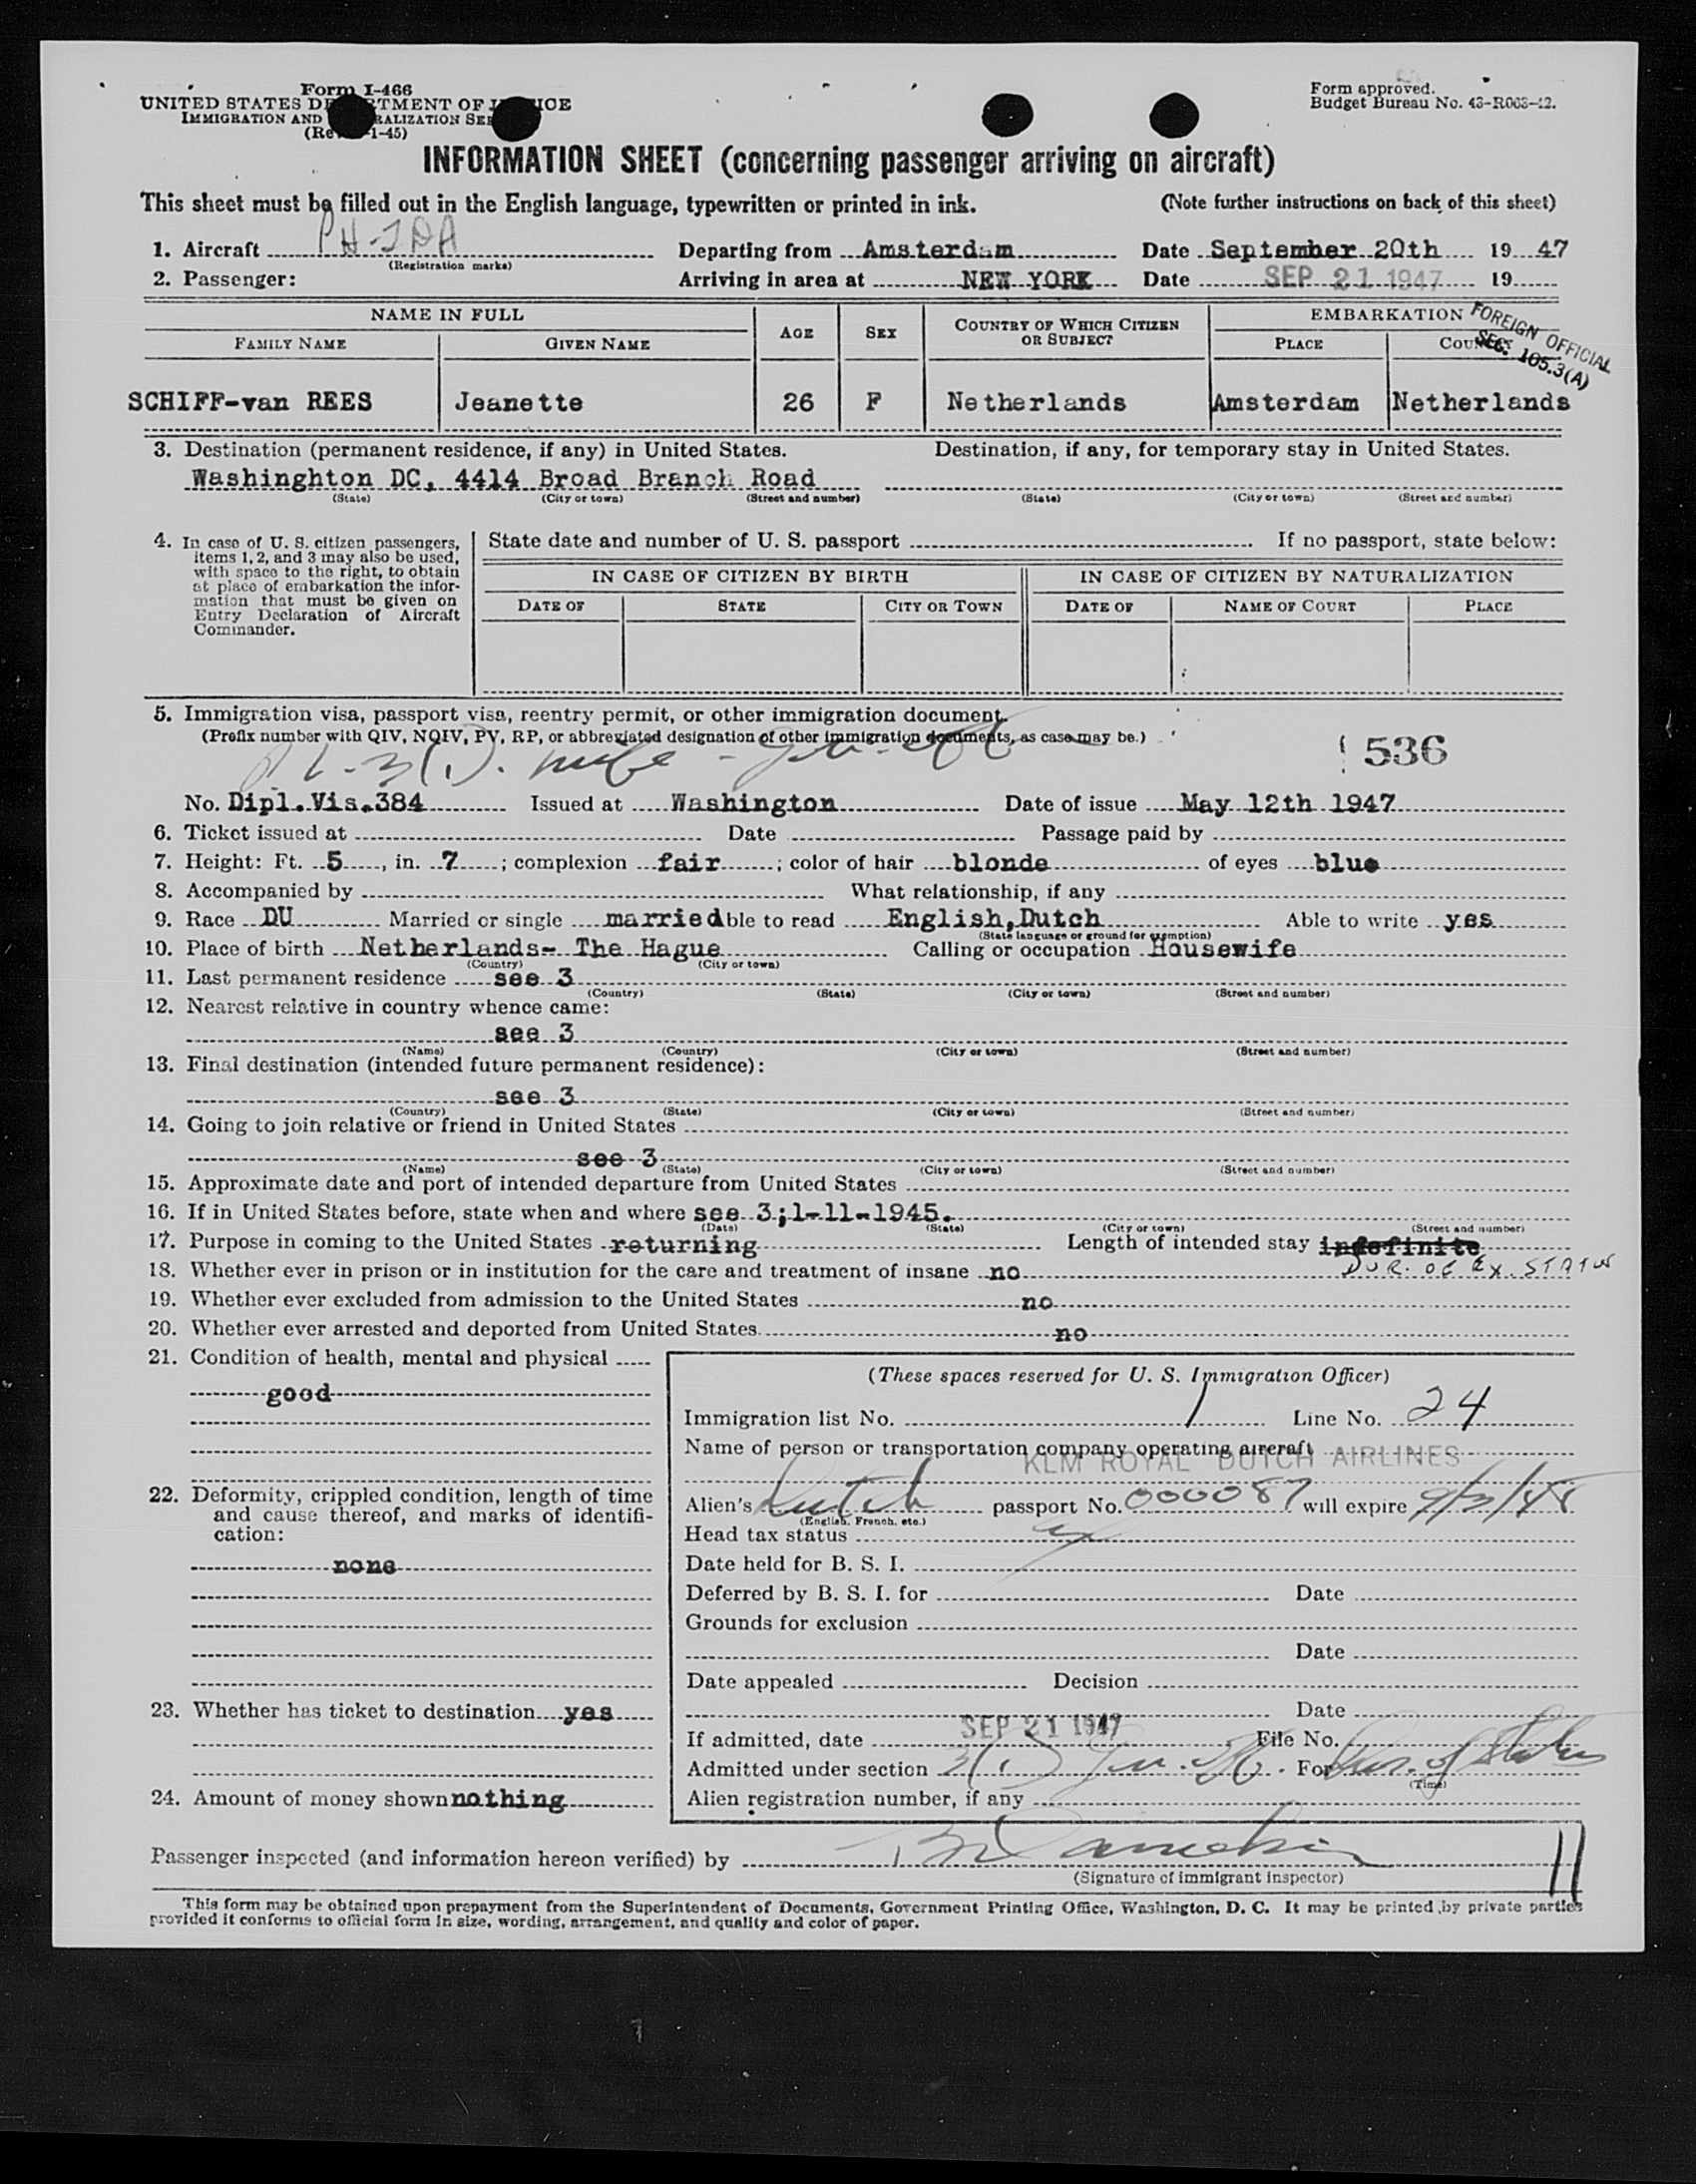 Form I-466
UNITED STATES DEPARTMENT OF JUSTICE
IMMIGRATION AND NATURALIZATION SERVICE
(Rev. 1-45)
Form approved.
Budget Bureau No. 43-R063-42.
INFORMATION SHEET (concerning passenger arriving on aircraft)
This sheet must be filled out in the English language, typewritten or printed in ink. (Note further instructions on back of this sheet)
1. Aircraft PH-TDA Departing from Amsterdam Date September 20th 19 47
(Registration marks)
2. Passenger: Arriving in area at NEW YORK Date SEP 21 1947 19
NAME IN FULL AGE SEX COUNTRY OF WHICH CITIZEN OR SUBJECT EMBARKATION
FAMILY NAME GIVEN NAME PLACE COUNTRY
FOREIGN OFFICIAL
SEC. 105.3(A)
SCHIFF-van REES Jeanette 26 F Netherlands Amsterdam Netherlands
3. Destination (permanent residence, if any) in United States. Destination, if any, for temporary stay in United States.
Washinghton DC, 4414 Broad Branch Road
(State) (City or town) (Street and number) (State) (City or town) (Street and number)
4. In case of U. S. citizen passengers, items 1, 2, and 3 may also be used, with space to the right, to obtain at place of embarkation the information that must be given on Entry Declaration of Aircraft Commander.
State date and number of U. S. passport If no passport, state below:
IN CASE OF CITIZEN BY BIRTH IN CASE OF CITIZEN BY NATURALIZATION
DATE OF STATE CITY OR TOWN DATE OF NAME OF COURT PLACE
5. Immigration visa, passport visa, reentry permit, or other immigration document.
(Prefix number with QIV, NQIV, PV, RP, or abbreviated designation of other immigration documents, as case may be.)
3(1). wife
536
No. Dipl.Vis.384 Issued at Washington Date of issue May 12th 1947
6. Ticket issued at Date Passage paid by
7. Height: Ft. 5, in. 7; complexion fair; color of hair blonde of eyes blue
8. Accompanied by What relationship, if any
9. Race DU Married or single married Able to read English,Dutch Able to write yes
(State language or ground for exemption)
10. Place of birth Netherlands- The Hague Calling or occupation Housewife
(Country) (City or town)
11. Last permanent residence see 3
(Country) (State) (City or town) (Street and number)
12. Nearest relative in country whence came:
see 3
(Name) (Country) (City or town) (Street and number)
13. Final destination (intended future permanent residence):
see 3
(Country) (State) (City or town) (Street and number)
14. Going to join relative or friend in United States
see 3
(Name) (State) (City or town) (Street and number)
15. Approximate date and port of intended departure from United States
16. If in United States before, state when and where see 3;1-11-1945.
(Date) (State) (City or town) (Street and number)
17. Purpose in coming to the United States returning Length of intended stay indefinite
DUR. OF EX. STATUS
18. Whether ever in prison or in institution for the care and treatment of insane no
19. Whether ever excluded from admission to the United States no
20. Whether ever arrested and deported from United States no
21. Condition of health, mental and physical
good
22. Deformity, crippled condition, length of time and cause thereof, and marks of identification:
none
23. Whether has ticket to destination yes
24. Amount of money shown nothing
(These spaces reserved for U. S. Immigration Officer)
Immigration list No. 1 Line No. 24
Name of person or transportation company operating aircraft
KLM ROYAL DUTCH AIRLINES
Alien's Dutch passport No. 000087 will expire 9/3/48
(English, French, etc.)
Head tax status ex
Date held for B. S. I.
Deferred by B. S. I. for Date
Grounds for exclusion
Date
Date appealed Decision
Date
If admitted, date SEP 21 1947 File No.
Admitted under section 3(1) For Dur. of Status
(Time)
Alien registration number, if any
Passenger inspected (and information hereon verified) by
(Signature of immigrant inspector)
This form may be obtained upon prepayment from the Superintendent of Documents, Government Printing Office, Washington, D. C. It may be printed by private parties
provided it conforms to official form in size, wording, arrangement, and quality and color of paper.